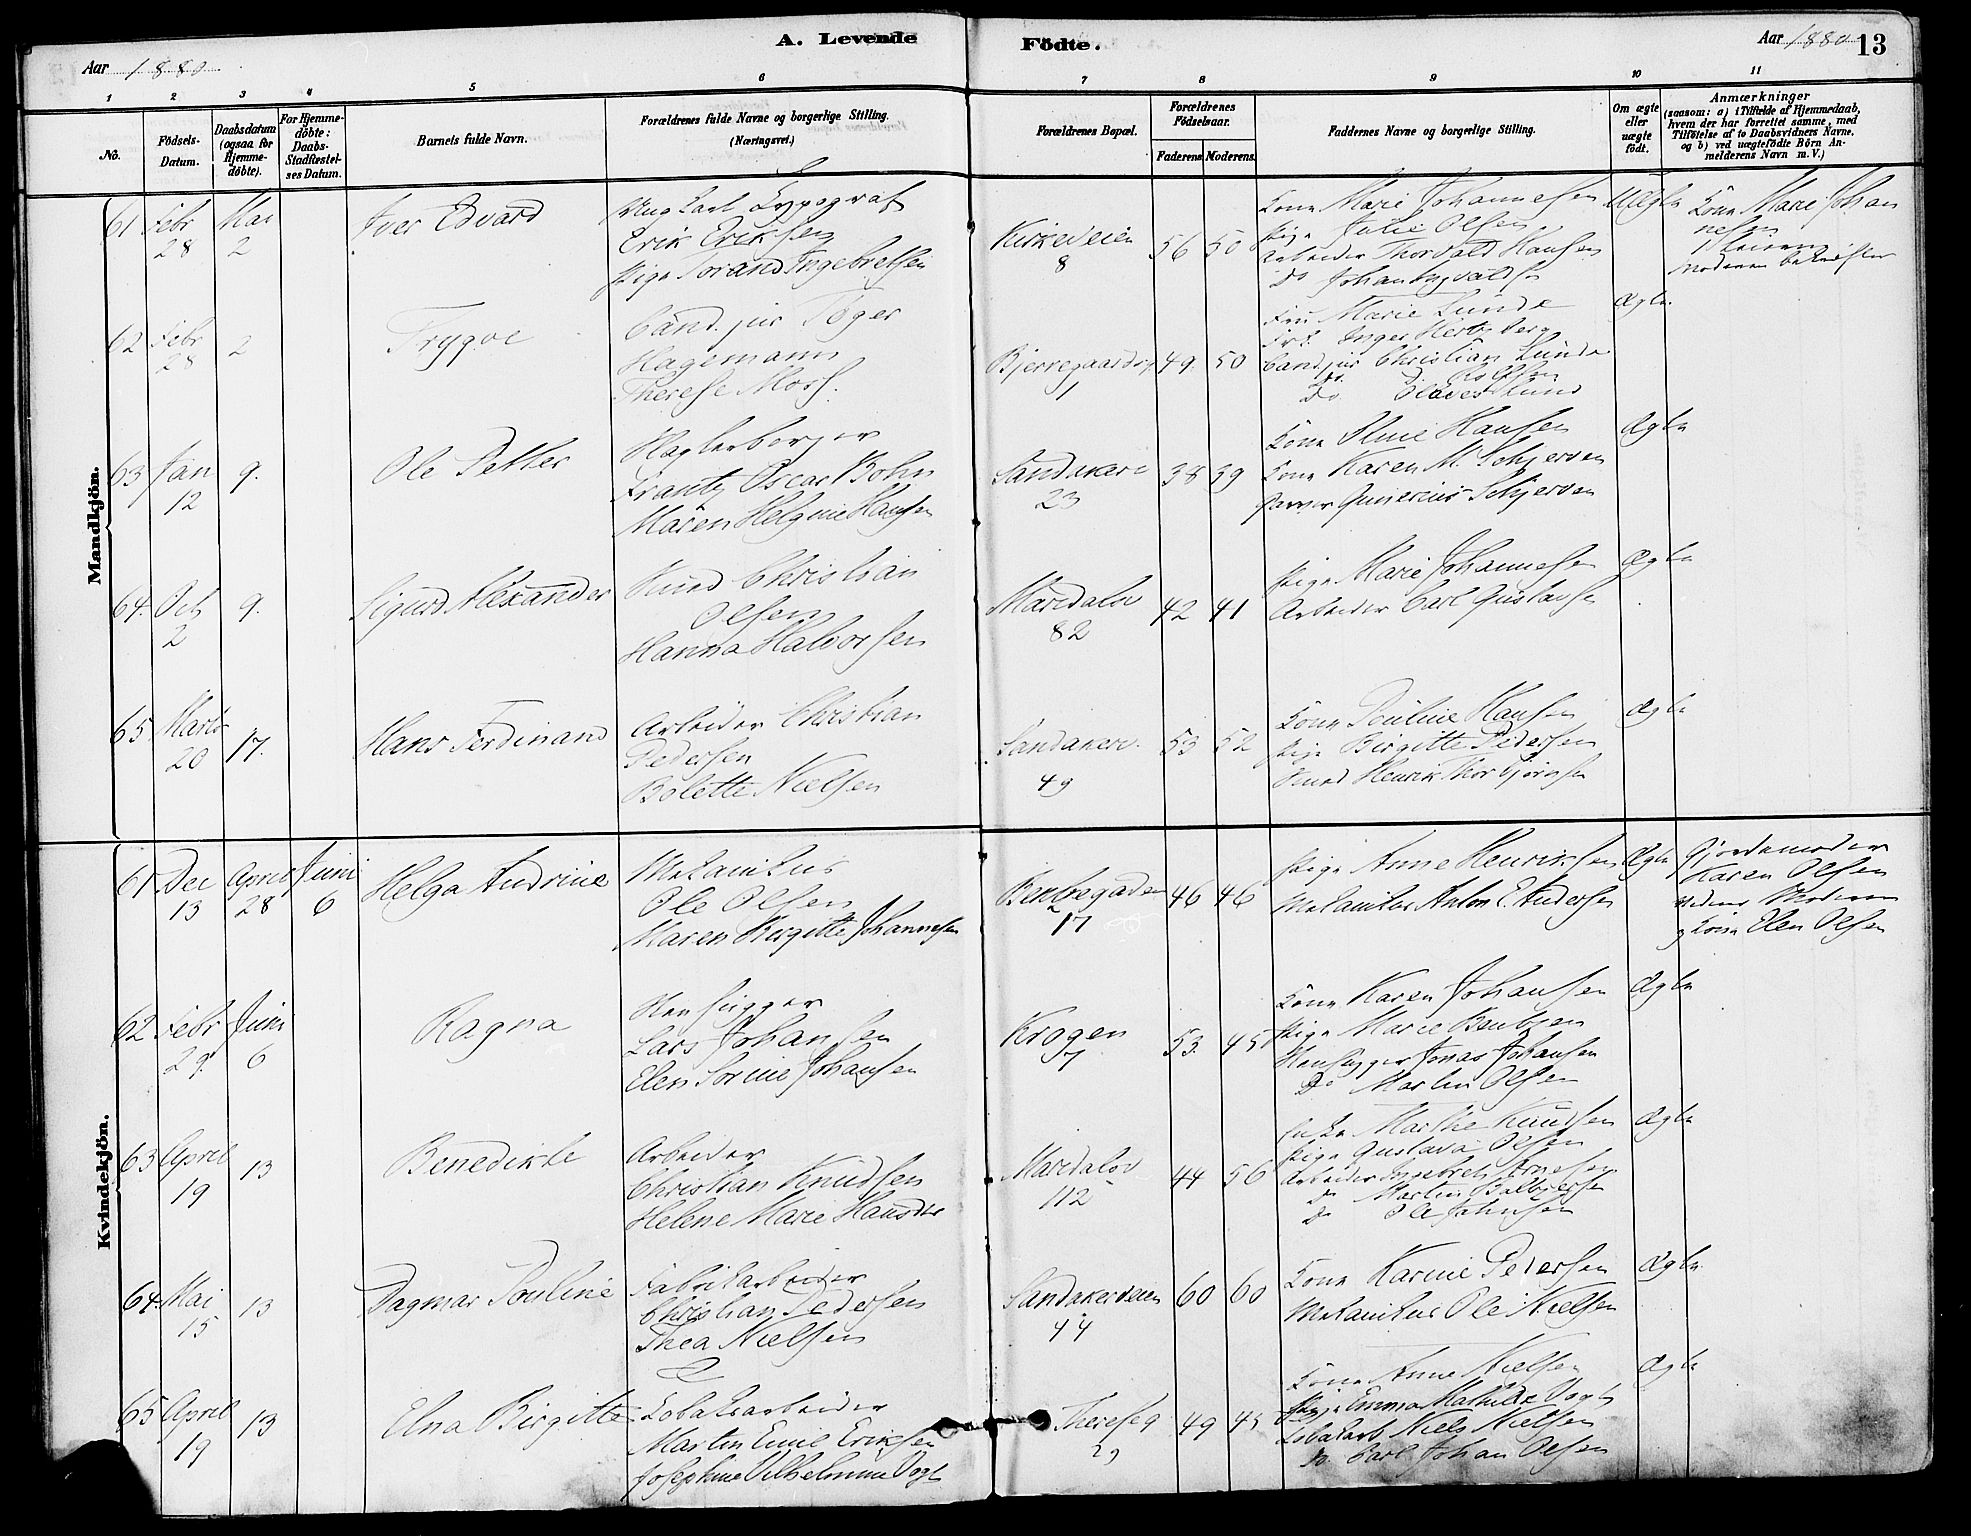 A. Levende Födte.
Aar 1880
Aar 1880
13
1 2 3 4 5 6 7 8 9 10 11
No.
Födsels-Datum.
Daabsdatum (ogsaa for Hjemme-döbte).
For Hjemme-döbte: Daabs-Stadfæstel-ses Datum.
Barnets fulde Navn.
Forældrenes fulde Navne og borgerlige Stilling.
(Næringsvei.)
Forældrenes Bopæl.
Forældrenes Födselsaar.
Faderens. Moderens.
Faddernes Navne og borgerlige Stilling.
Om ægte eller uægte födt.
Anmærkninger
(saasom: a) i Tilfælde af Hjemmedaab,
hvem der har forrettet samme, med
Tilföielse af to Daabsvidners Navne,
og b) ved uægtefödte Börn An-
melderens Navn m. V.)
Mandkjön.
61 Febr 28 Mai 2 Iver Edvard
Ungkarl Typograf
Erik Eriksen
Pige Torand Ingebretsen
Kirkeveien 8 56 50
Kone Marie Johannesen
Pige Julie Olsen
Arbeider Thorvald Hansen
Do Johan Ingvaldsen
Uægte
Kone Marie Johan
nesen
Moderen bekræfter
62 Febr 28 2 Trygve
Cand. jur Töger
Hagemann
Therese Morf.
Bjerregaardsg. 1 49. 50
Fru Marie Lunde
Frk. Inger Hertzberg
Cand jur Christian Lunde
Do. D. Rolfsen
Do.
Ægte.
63 Jan 12 9. Ole Petter
Frantz Oscar Bohn
Maren Helgine Hansen
Sandakerv 23 38 39
Kone Oline Hansen
Kone Karen M. Schjerven
Garver Gunerius Schjerven
Ægte
64. Oct 2 9. Sigurd Alexander
Knud Christian
Olsen
Hanna Halvorsen
Maridalsv 82 42 41
Pige Marie Johannesen
Arbeider Carl Gustavsen
Ægte
65 Marts 20 17. Hans Ferdinand
Arbeider Christian
Pedersen
Bolette Nielsen
Sandakerv. 49 53 52
Kone Pouline Hansen
Pige Birgitte Pedersen
Henrik Thorbjørnsen
Ægte
Kvindekjön.
61 Dec 13 April 28 Juni 6 Helga Andrine
Mekanikus
Ole Olsen
Maren Birgitte Johannesen
Bentsegaden 17 46 46
Pige Anne Henriksen
Mekanikus Anton E. Andersen
Ægte
Gjordemoder
Karen Olsen
Vidner Moderen
og Kone Elen Olsen
62 Febr 29. Juni 6 Ragna
Lars Johansen
Elen Sorine Johansen
Krogen 7 53. 45
Kone Karen Johansen
Pige Marie Bentzen
Stenhugger Jonas Johansen
Do Martin Olsen
Ægte
63 April 19 13 Benedikte
Arbeider
Christian Knudsen
Helene Marie Hansdtr
Maridalsv 112 44 56
Enke Marthe Knudsen
Pige Gustava Olsen
Arbeider Ingebret Arnesen
Do Martin
Do Ole Johnsen
Ægte
64. Mai 15 13 Dagmar Pouline
Fabrikarbeider
Christian Pedersen
Thea Nielsen
Sandakerveien 44 60 60
Kone Karine Pedersen
Mekanikus Ole Nielsen
Ægte
65 April 19 13 Elna Birgitte
Tobaksarbeider
Martin Emil Eriksen
Josephine Vilhelmine Vogt
Thereseg 49 45
Kone Anne Nielsen
Pige Emma Mathilde Vogt
Tobakarb Niels Nielsen
Do. Carl Johan Olsen
Ægte